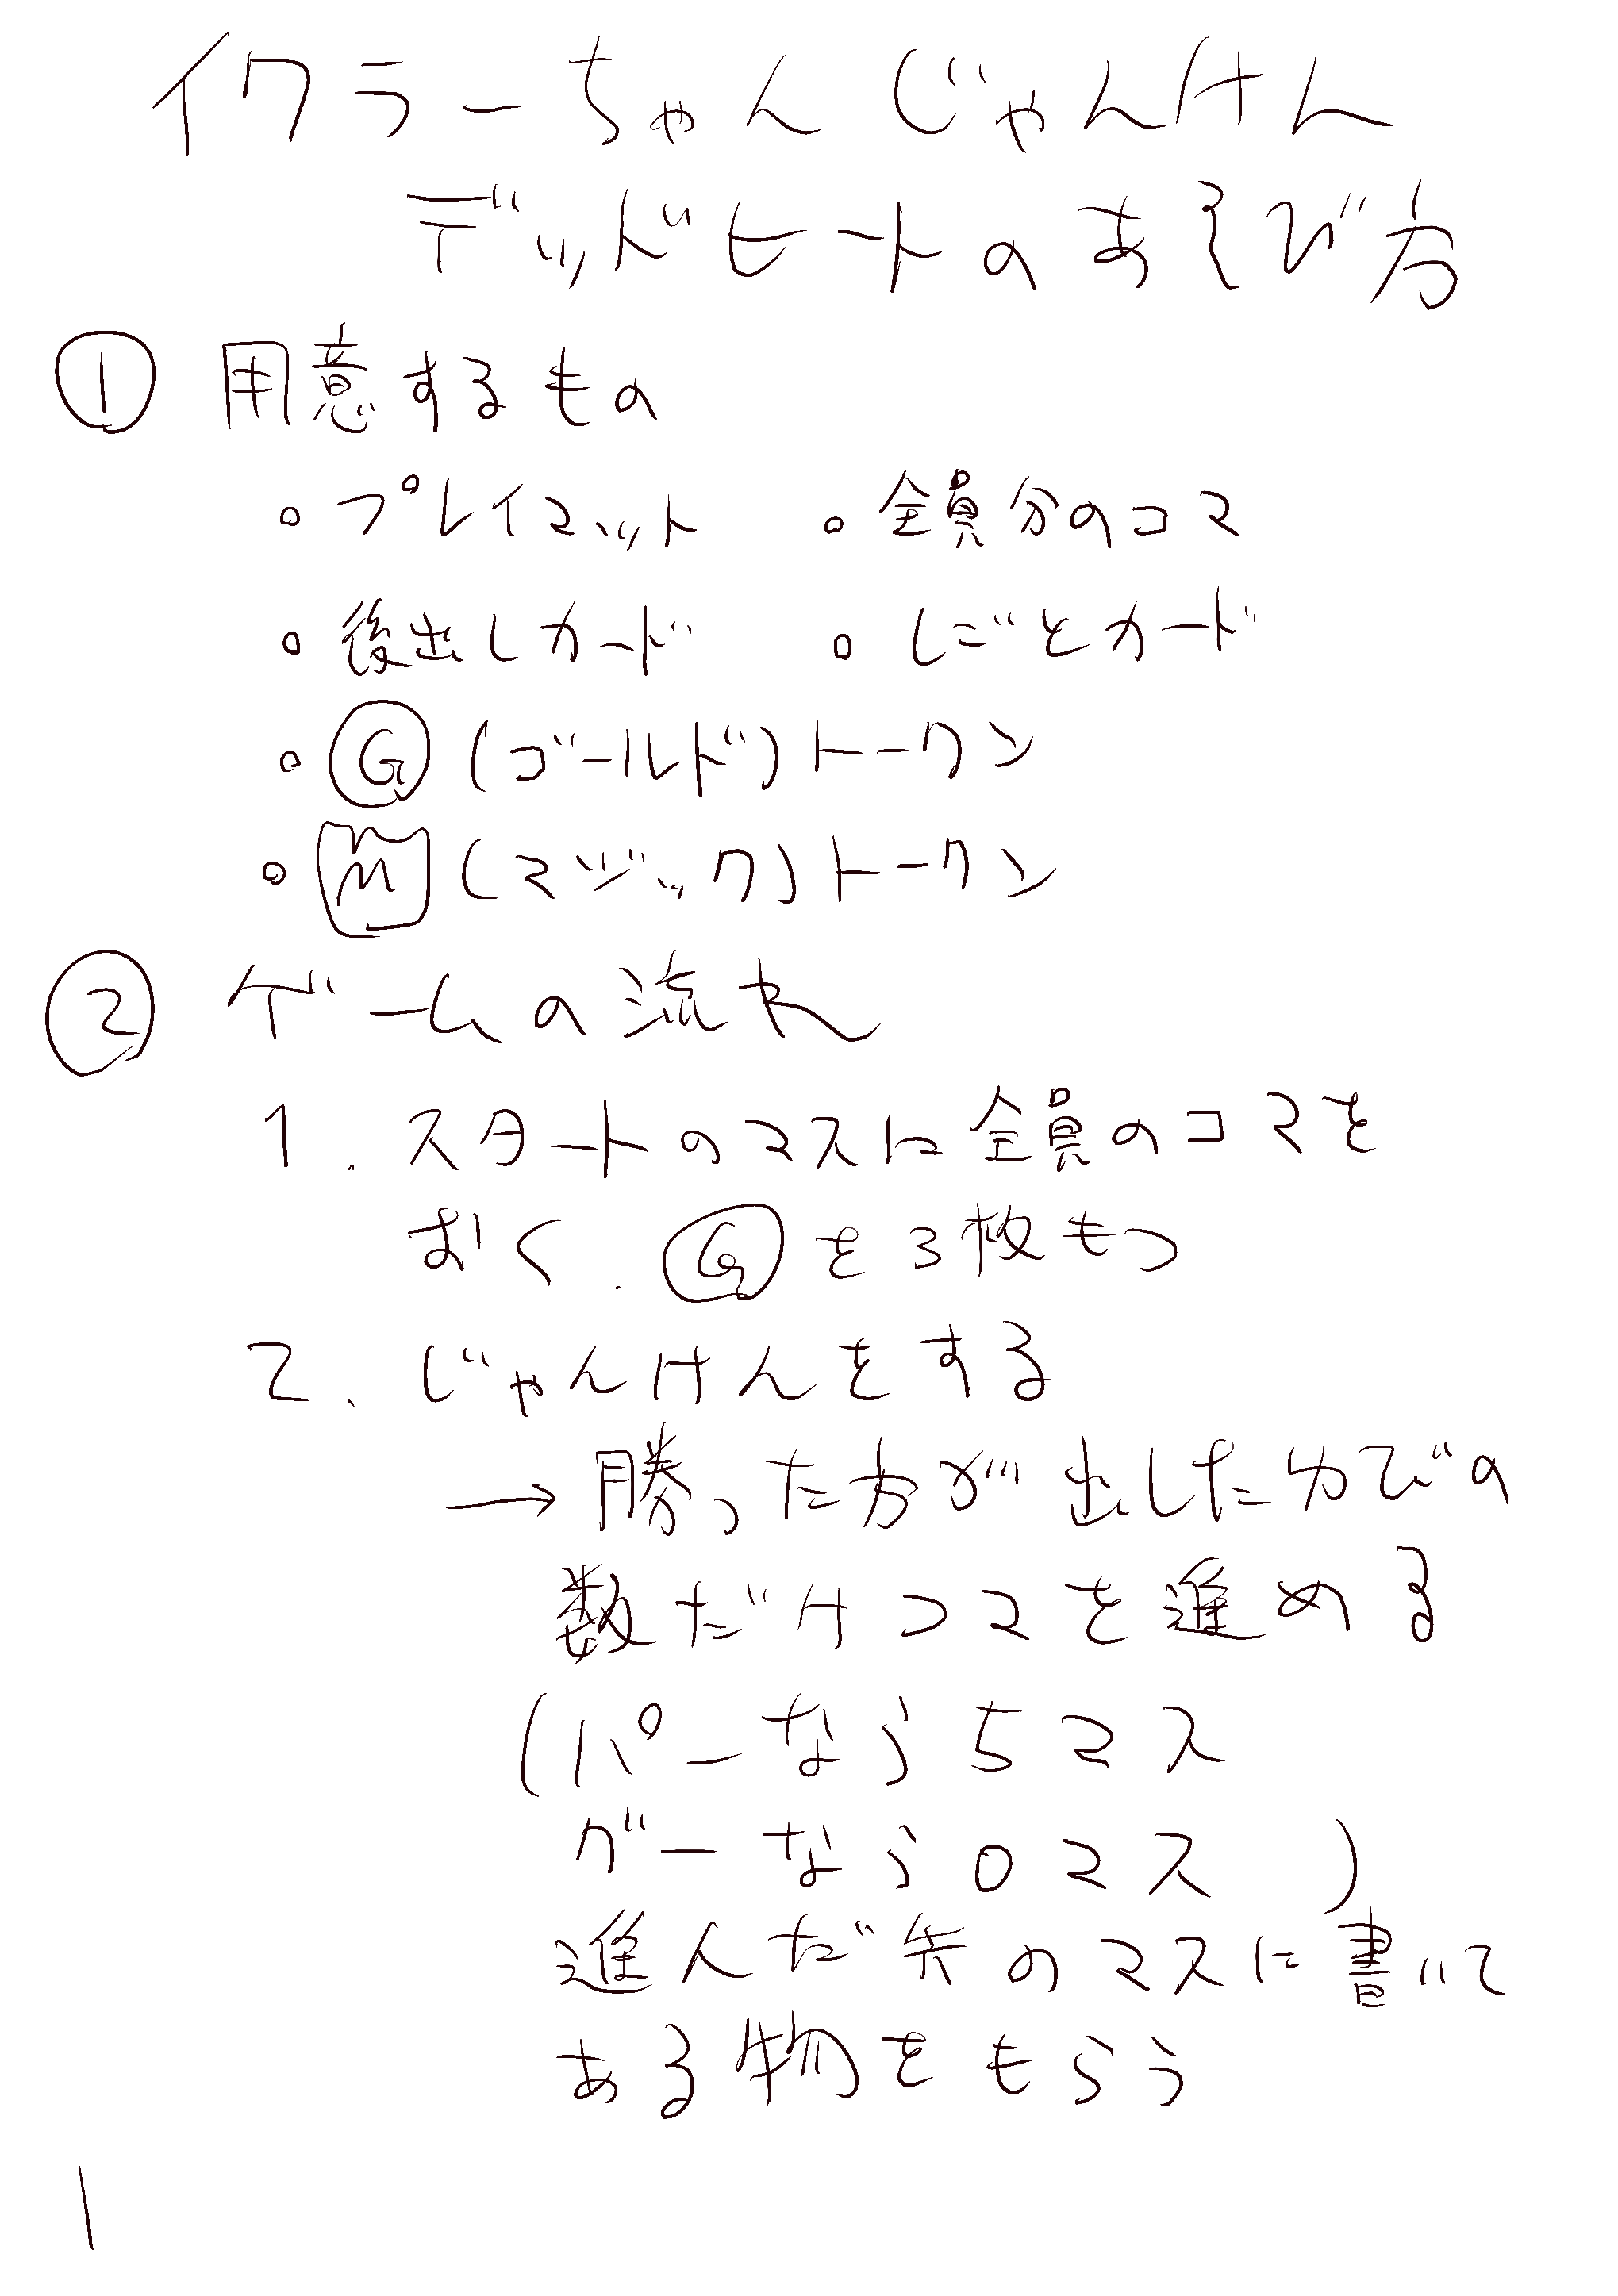 イクラーちゃんじゃんけん
デッドヒートのあそび方
① 用意するもの
。プレイマット 。全員分のコマ
。後出しカード 。しごとカード
。Ⓖ(ゴールド)トークン
。M(マジック)トークン
② ゲームの流れ
1. スタートのマスに全員のコマを
おく.Ⓖを3枚もつ
2. じゃんけんをする
→勝った方が出したゆびの
数だけコマを進める
(パーなら5マス
グーなら0マス )
進んだ先のマスに書いて
ある物をもらう
1